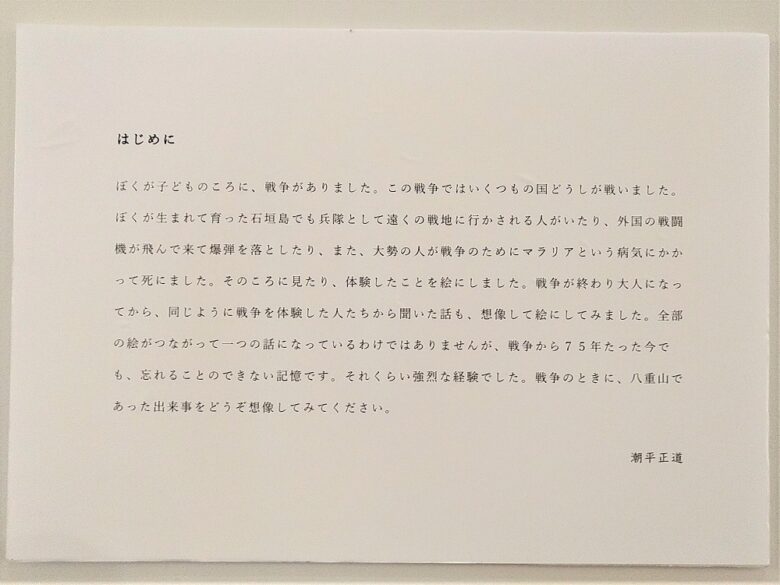 はじめに
ぼくが子どものころに、戦争がありました。この戦争ではいくつもの国どうしが戦いました。
ぼくが生まれて育った石垣島でも兵隊として遠くの戦地に行かされる人がいたり、外国の戦闘
機が飛んで来て爆弾を落としたり、また、大勢の人が戦争のためにマラリアという病気にかか
って死にました。そのころに見たり、体験したことを絵にしました。戦争が終わり大人になっ
てから、同じように戦争を体験した人たちから聞いた話も、想像して絵にしてみました。全部
の絵がつながって一つの話になっているわけではありませんが、戦争から７５年たった今で
も、忘れることのできない記憶です。それくらい強烈な経験でした。戦争のときに、八重山で
あった出来事をどうぞ想像してみてください。
潮平正道